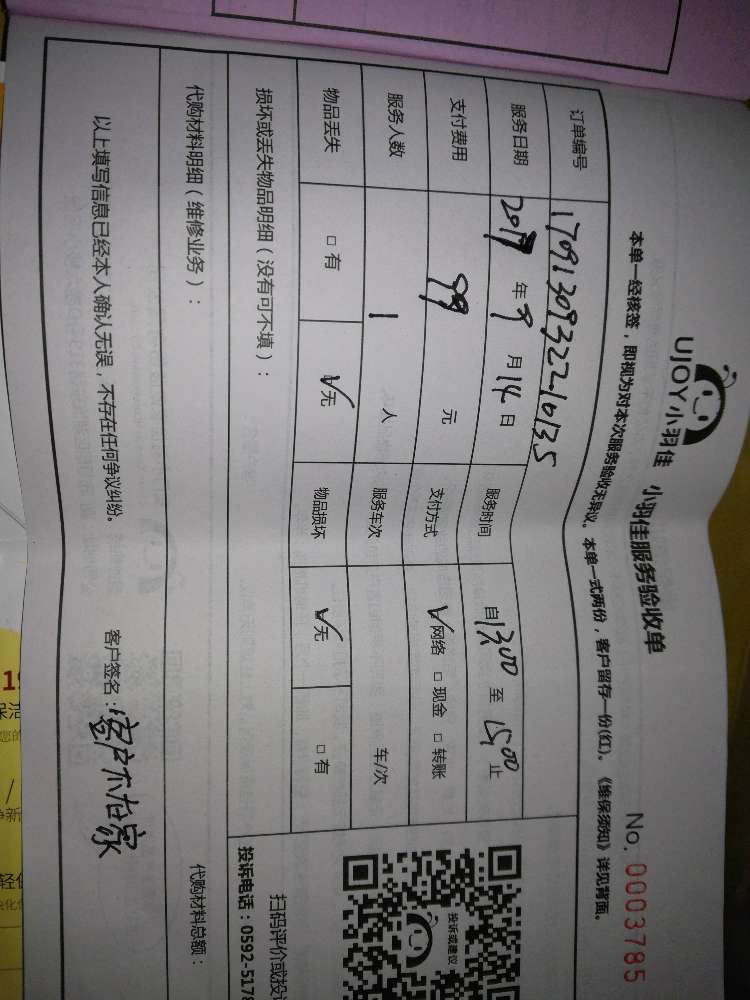 UJOY小羽佳 小羽佳服务验收单 No. 0003785
本单一经核签，即视为对本次服务验收无异议。本单一式两份，客户留存一份(红)。《维保须知》详见背面。
订单编号 1709130932210135
服务日期 2017年9月14日 服务时间 自1300至1500止
支付费用 99元 支付方式 ☑网络 □现金 □转账
服务人数 1人 服务车次 车/次
物品丢失 □有 ☑无 物品损坏 ☑无 □有
损坏或丢失物品明细（没有可不填）：
代购材料明细（维修业务）： 代购材料总额：
以上填写信息已经本人确认无误，不存在任何争议纠纷。 客户签名：客户不在家
投诉或建议
扫码评价或投
投诉电话：0592-5178